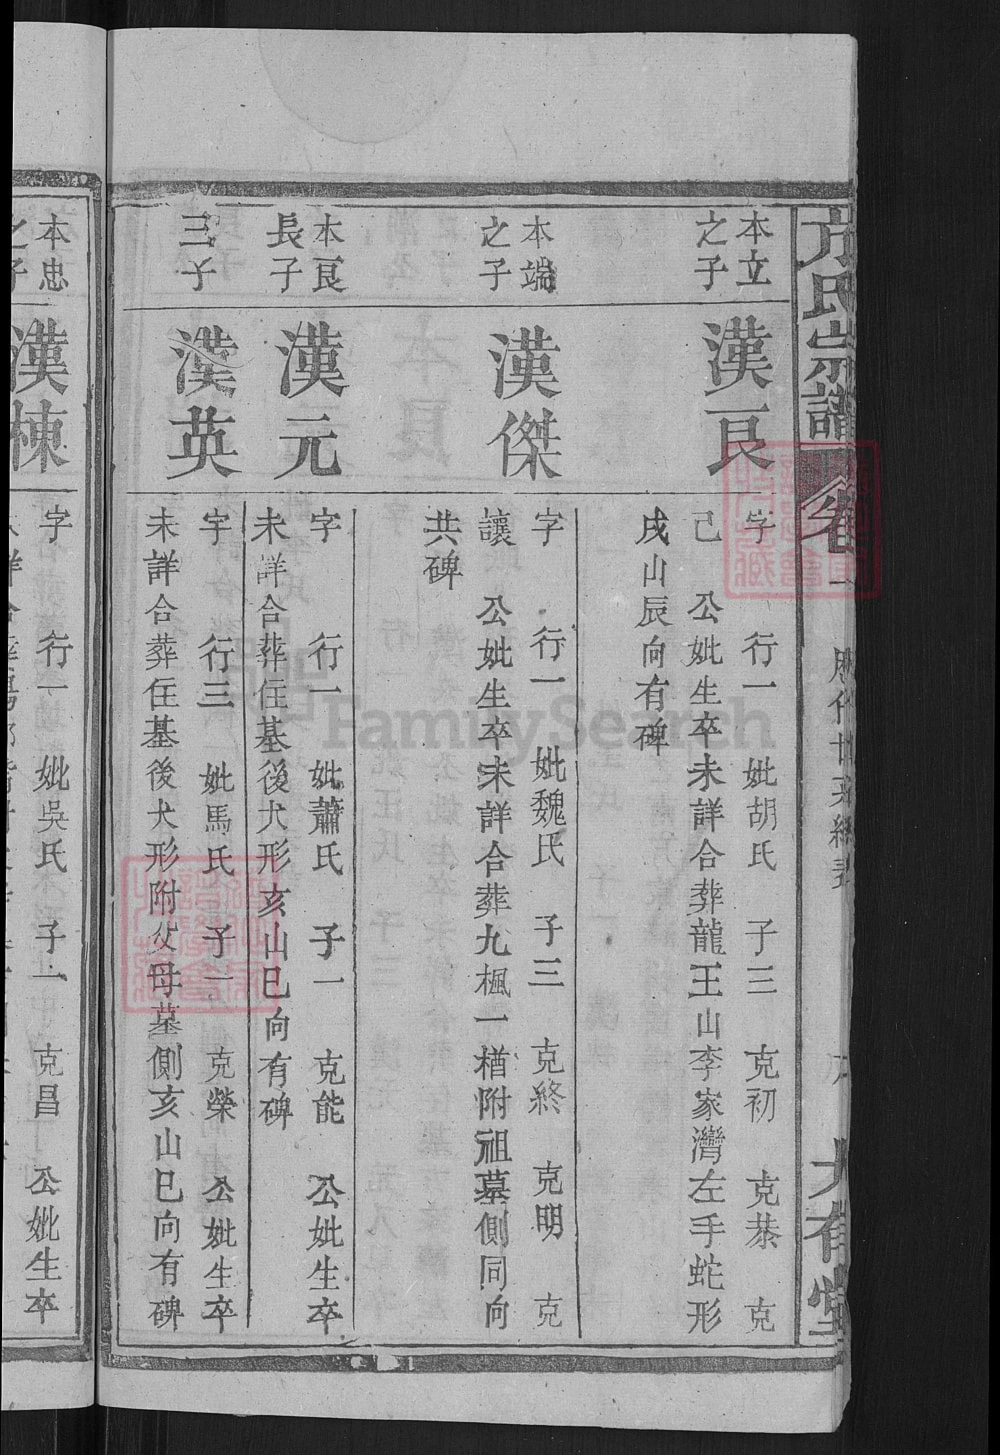 方氏宗譜
卷一
大有堂
本立
之子
漢良
字 行一 妣胡氏 子三 克初 克恭 克
己 公妣生卒未詳合葬龍王山李家灣左手蛇形
戌山辰向有碑
本端
之子
漢傑
字 行一 妣魏氏 子三 克終 克明 克
讓 公妣生卒未詳合葬九楓一楢附祖墓側同向
共碑
本良
長子
漢元
字 行一 妣蕭氏 子一 克能 公妣生卒
未詳合葬住基後犬形亥山巳向有碑
三子
漢英
字 行三 妣馬氏 子一 克榮 公妣生卒
未詳合葬住基後犬形附父母墓側亥山巳向有碑
本忠
之子
漢棟
字 行一 妣吳氏 子一 克昌 公妣生卒
FamilySearch